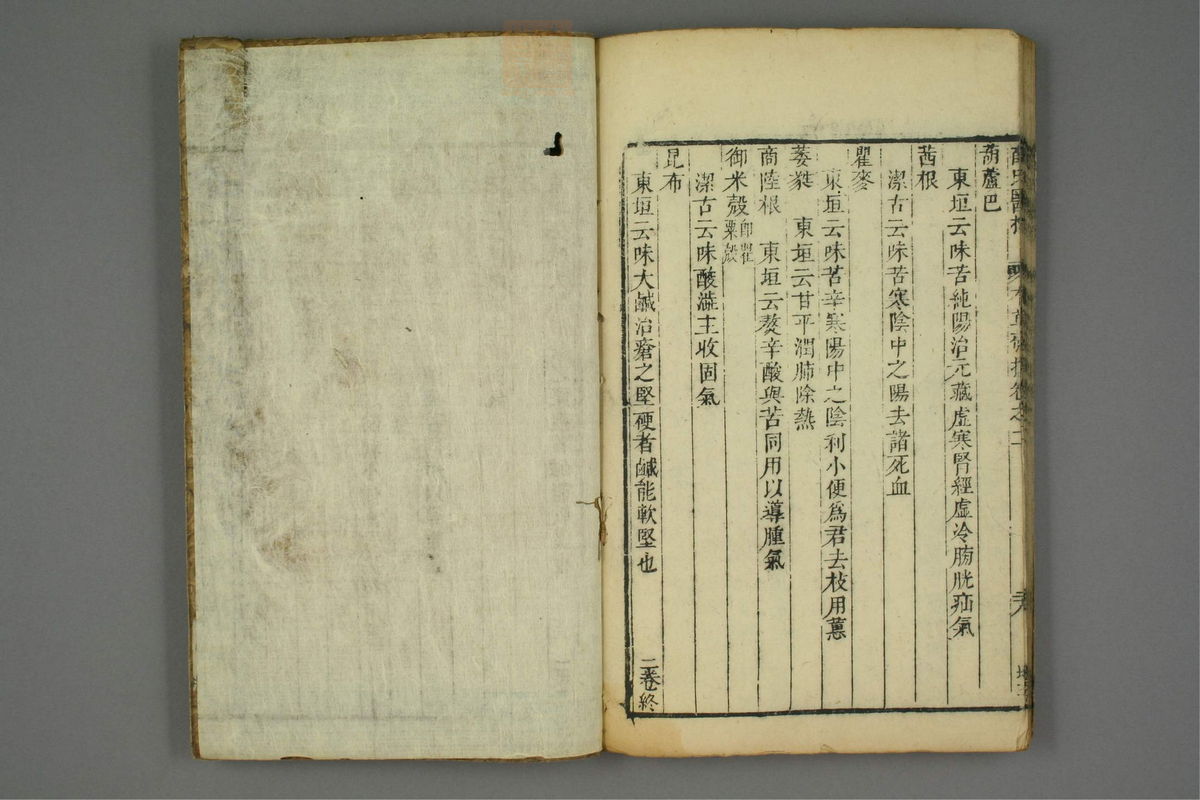 葫蘆巴
東垣云味苦純陽治元藏虛寒腎經虛冷膀胱疝氣
茜根
潔古云味苦寒陰中之陽去諸死血
瞿麥
東垣云味苦辛寒陽中之陰利小便爲君去枝用蕙
萎蕤 東垣云甘平潤肺除熱
商陸根 東垣云蔆辛酸與苦同用以導腫氣
御米殼 即罌粟殼
潔古云味酸澁主收固氣
昆布
東垣云味大鹹治瘡之堅硬者鹹能軟堅也
二卷終